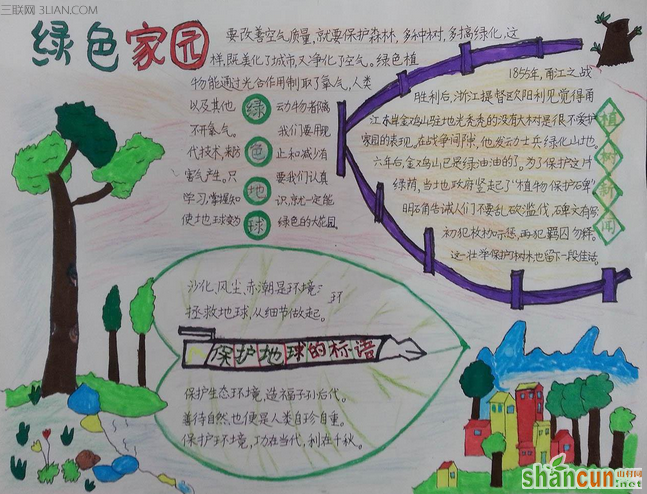 三联网 3LIAN.COM
绿色家园
要改善空气质量,就要保护森林,多种树,多搞绿化,这
样,既美化了城市,又净化了空气。绿色植
物能通过光合作用制取了氧气,人类
以及其他
动物都离
不开氧气。
我们要用现
代技术,来防
止和减少有
害气产生。只
要我们认真
学习,掌握知
识,就一定能
使地球变为
绿色的大花园。
绿色地球
1855年,甬江之战
胜利后,浙江提督欧阳利见觉得甬
江东岸金鸡山驻地光秃秃的没有大树是很不爱护
家园的表现。在战争间隙,他发动士兵绿化山地。
六年后,金鸡山已是绿油油的了。为了保护这片
绿荫,当地政府竖起了“植物保护碑”
明石角告诫人们不要乱砍滥伐,碑文有
初犯枚枷示惩,再犯羁囚勿释。
这一壮举保护了树木也留下一段佳话。
植树新闻
沙化,风尘,赤潮是环境
环
拯救地球,从细节做起。
保护地球的标语
保护生态环境,造福子孙后代。
善待自然,也便是人类自珍自重。
保护环境,功在当代,利在千秋。
shancun
山村网
.net